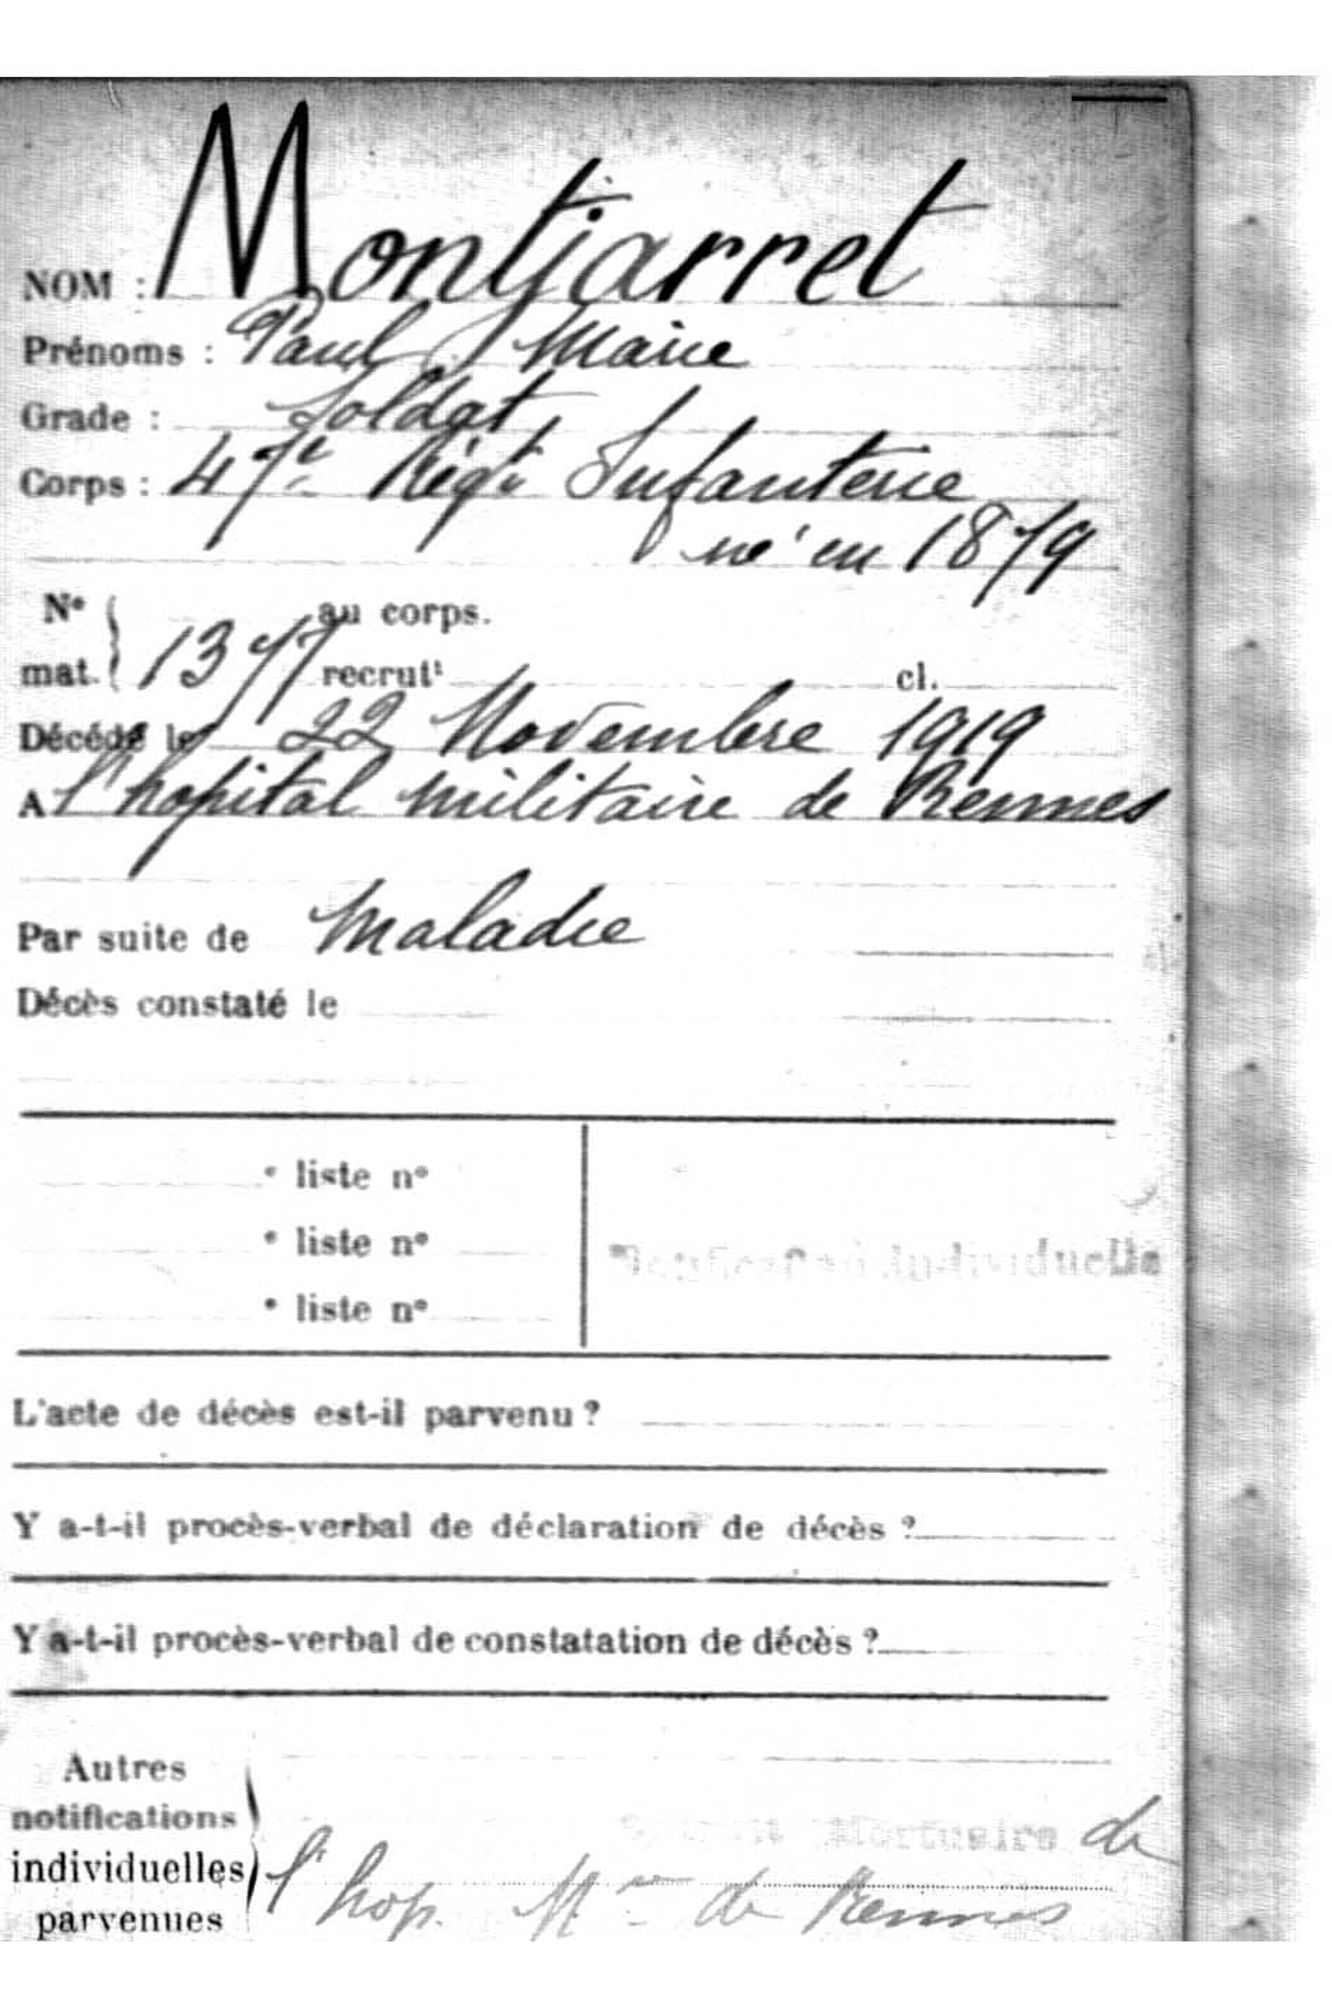 NOM : Montjarret
Prénoms : Paul Marie
Grade : Soldat
Corps : 47e Régt Infanterie
né en 1879
N° au corps.
mat. 1377 recrutt cl.
Décédé le 22 Novembre 1919
A l'hopital militaire de Rennes
Par suite de Maladie
Décès constaté le
liste n°
liste n°
liste n°
Notification individuelle
L'acte de décès est-il parvenu ?
Y a-t-il procès-verbal de déclaration de décès ?
Y a-t-il procès-verbal de constatation de décès ?
Autres
notifications
Mortuaire de
individuelles
l'hop. Mre de Rennes
parvenues